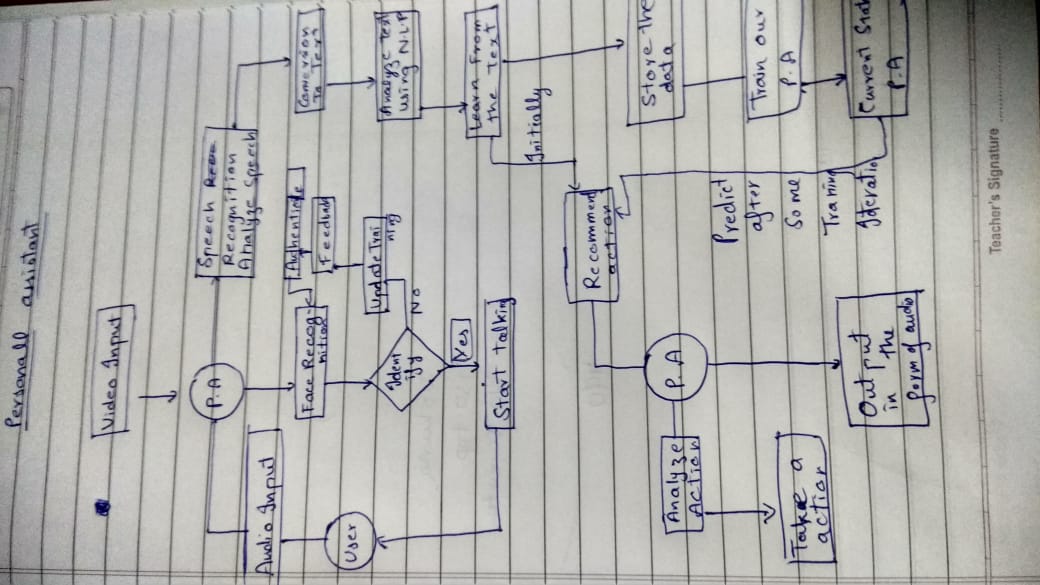 Personall assistant
Video Input
P.A
Audio Input
User
Speech
Recognition
Analyze Speech
Conversion
To
Text
Analyze text
Using NLP
Learn From
the Text
Initially
Store The
data
Train our
P.A
Current
P.A
Face Recog-
nition
Authenticate
Feedback
Update Trai
ning
Ident
ify
No
Yes
Start talking
Recommend
action
Predict
after
Some
Training
P.A
Analyze
Action
Take a
action
Output
in
the
form of audio
Teacher's Signature